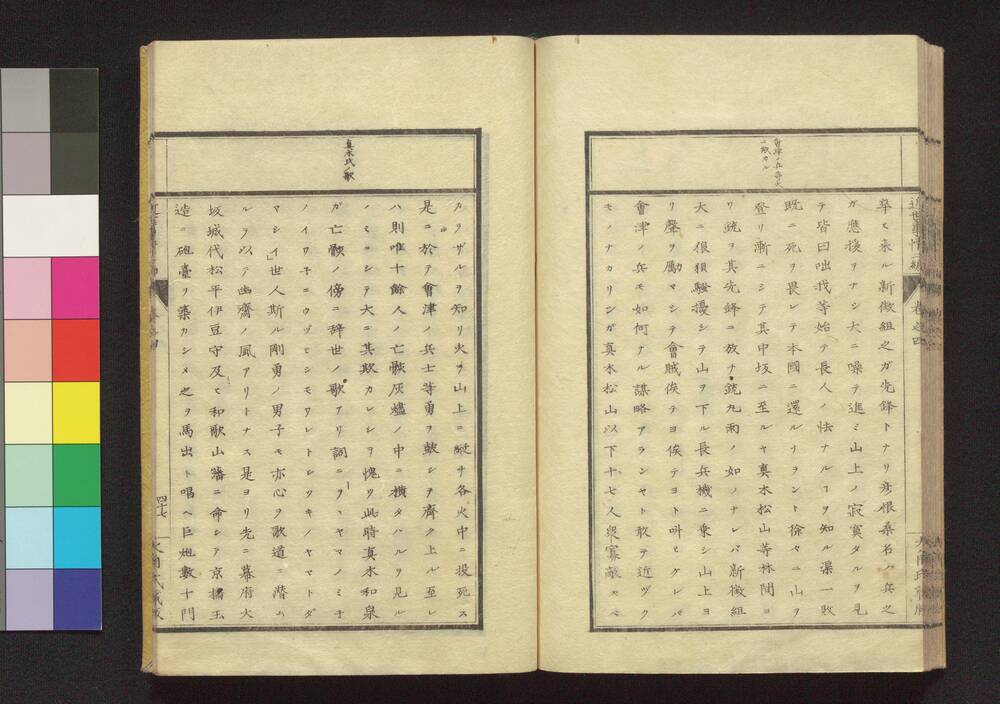 卒ヒ来ル新徴組之ガ先鋒トナリ彦根桑名ノ兵之
ガ應援ヲナシ大ニ噪テ進ミ山上ノ寂寞タルヲ見
テ皆曰咄我等始テ長人ノ怯ナルヿヲ知ル渠一敗
既ニ死ヲ畏レテ本國ニ還ルナラント徐々ニ山ヲ
登リ漸ニシテ其中坂ニ至ルヤ真木松山等林間ヨ
リ銃ヲ其先鋒ニ放チ銃丸雨ノ如クナレバ新徴組
大ニ狼狽騒擾シテ山ヲ下ル長兵機ニ乗シ山上ヨ
リ聲ヲ勵マシテ會賊俟テヨ俟テヨト叫ヒケレバ
會津ノ兵モ如何ナル謀略アランヤト敢テ近ヅク
モノナカリシガ真木松山以下十七人衆寡敵スベ
真木氏ノ歌
カラザルヲ知リ火ヲ山上ニ縦チ各火中ニ投死ス
是ニ於テ會津ノ兵士等勇ヲ皷シヲ齊ク上ル至レ
ハ則唯十餘人ノ亡骸灰燼ノ中ニ横タハルヲ見ル
ノミニシテ大ニ其欺カレシヲ愧ツ此時真木和泉
ガ亡骸ノ傍ニ辞世ノ歌アリ詞ニヲヽヤマノミネ
ノイワネニウヅミニモワレトシツキノヤマトダ
マシイ」世人斯ル剛勇ノ男子モ亦心ヲ歌道ニ潜ム
ルヲ以テ幽齋ノ風アリトナス是ヨリ先ニ幕府大
坂城代松平伊豆守及ヒ和歌山藩ニ命シテ京攝玉
造ニ砲臺ヲ築カシメ之ヲ馬出ト唱ヘ巨炮數十門
四十七